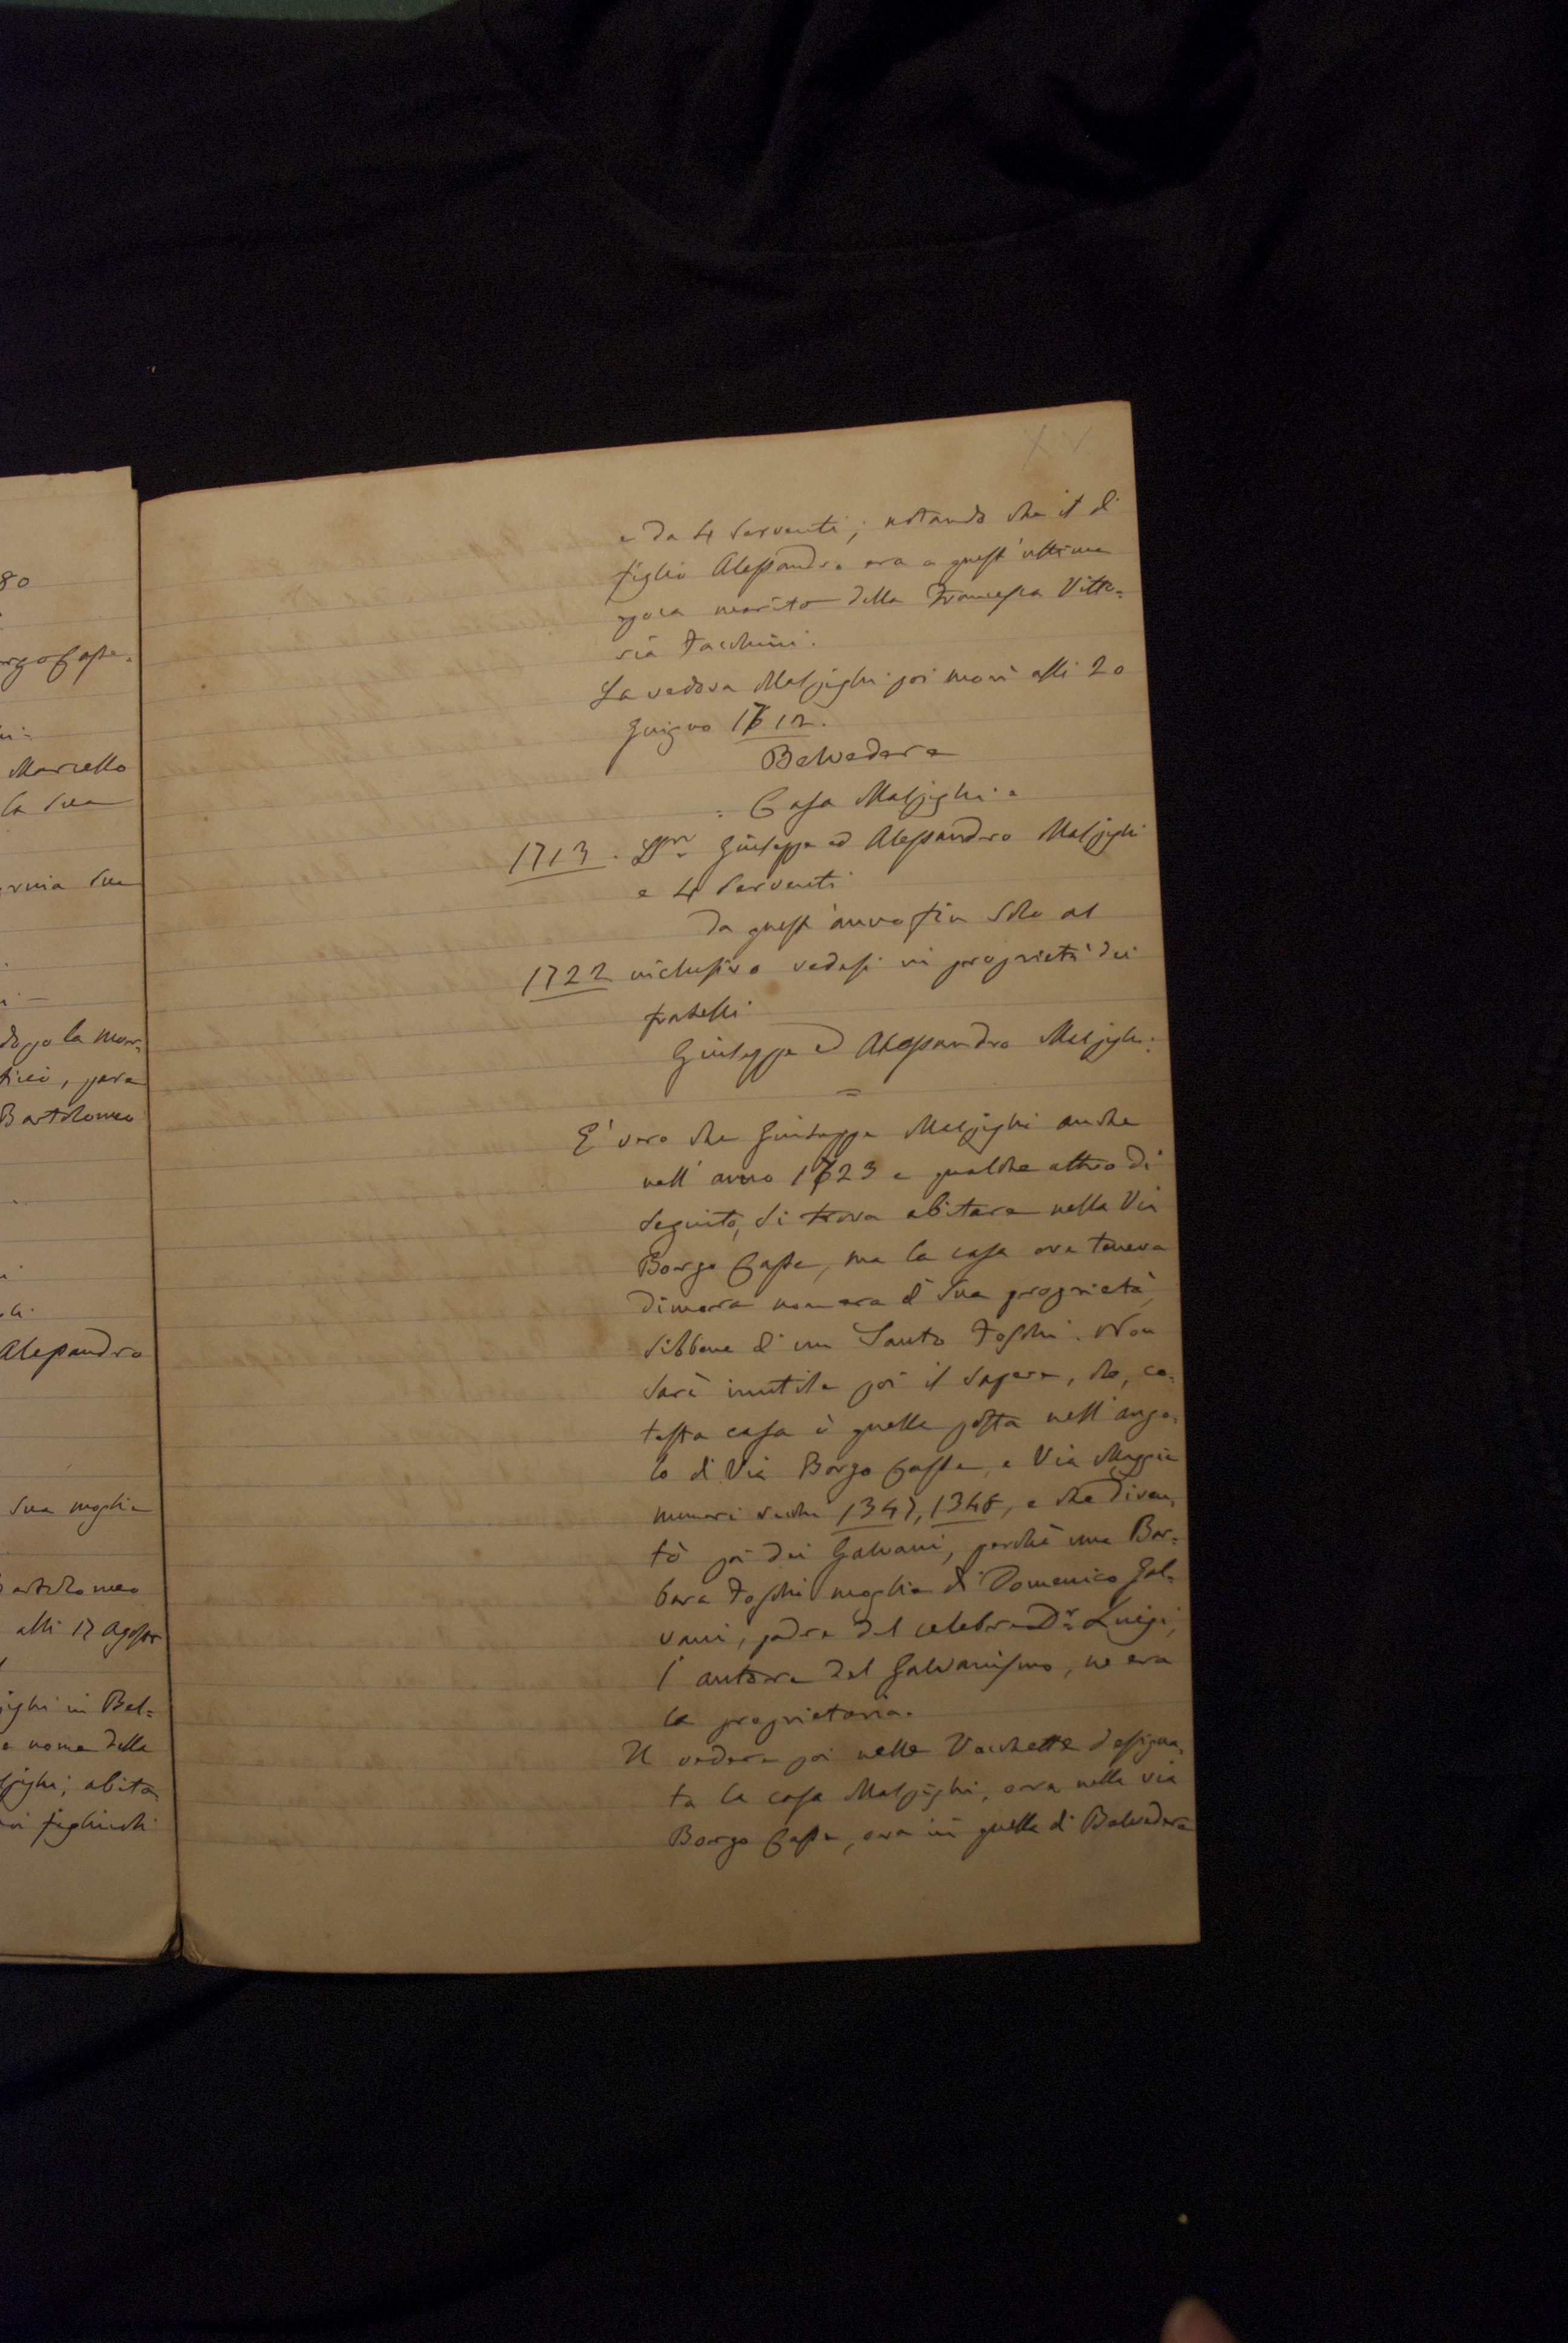 80
Marcello
la sua
sua
dopo la mor=
tici, pare
Bartolomeo
Alessandro
sua moglie
Bartolomeo
alli 17 Agosto
in Bel=
e nome della
abita=
figliuoli
XV.
e da 4 serventi; notando che il di
figlio Alessandro era a quest'ultima
epoca marito della Francesca Vitto=
ria Facchini.
La vedova Malpighi poi morì alli 20
Giugno 1712.
Belvedere
= Casa Malpighi =
1713. Giuseppe ed Alessandro Malpighi
e 4 serventi
Da quest'anno fin solo al
1722 inclusivo vedesi in proprietà dei
fratelli
Giuseppe ed Alessandro Malpighi.
=
E' vero che Giuseppe Malpighi anche
nell'anno 1723 e qualche altro di
seguito, si trova abitare nella Via
Borgo Casse, ma la casa ove teneva
dimora non era di sua proprietà,
sibbene di un Santo Foschi. Non
sarà inutile poi il sapere, che, co=
testa casa è quella posta nell'ango=
lo di Via Borgo Casse, e Via Maggia
numeri vecchi 1347, 1348, e che diven=
tò poi dei Galvani, perchè una Bar=
bara Foschi moglie di Domenico Gal=
vani, padre del celebre Dr. Luigi,
l'autore del Galvanismo, ne era
la proprietaria.
Il vedere poi nelle Vacchette designa=
ta la casa Malpighi, ora nella via
Borgo Casse, ora in quella di Belvedere